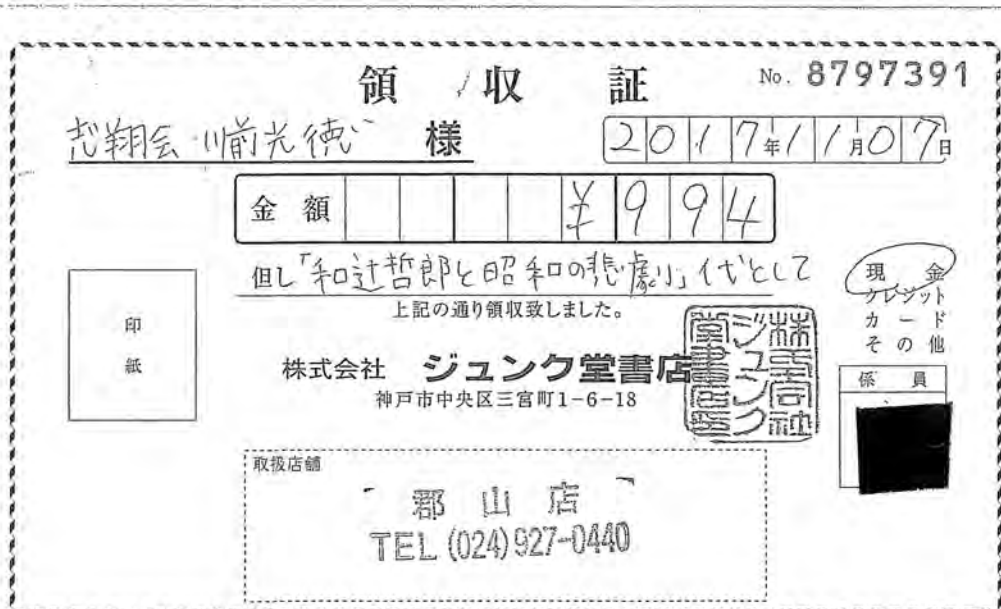 領収証
No. 8797391
志翔会 川前光徳 様
2017年11月07日
金額 ¥994
但し「和辻哲郎と昭和の悲劇」代として
上記の通り領収致しました。
現金
クレジット
カード
その他
印
紙
株式会社 ジュンク堂書店
神戸市中央区三宮町1-6-18
株式会社ジュンク堂書店印
係員
取扱店舗
郡山店
TEL (024)927-0440